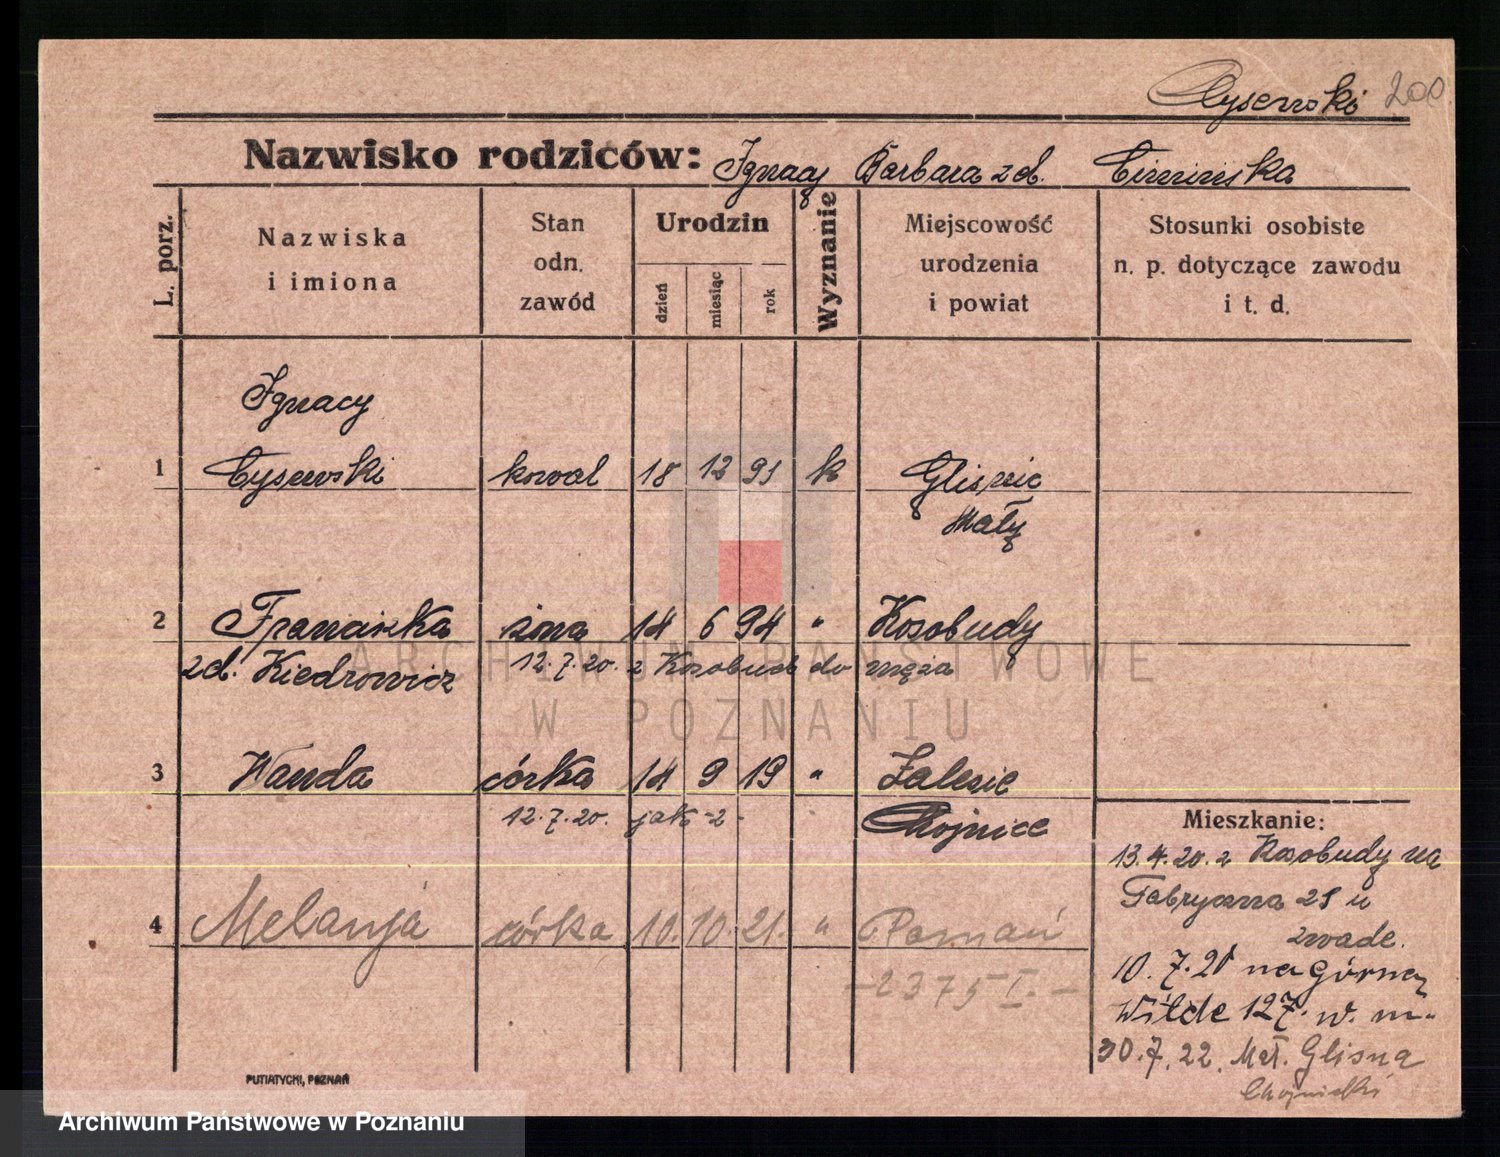 Cysewski 200
Nazwisko rodziców: Ignacy Barbara zd. Cimińska
L. porz.
Nazwiska i imiona
Stan odn. zawód
Urodzin
dzień
miesiąc
rok
Wyznanie
Miejscowość urodzenia i powiat
Stosunki osobiste n. p. dotyczące zawodu i t. d.
Ignacy
1 Cysewski kowal 18 12 91 k Glisnie
Mały
2 Franciszka żona 14 6 94 " Kosobudy
zd. Kiedrowicz 12.7.20. z Kosobud do męża
3 Wanda córka 14 9 19 " Zalesie
12.7.20. jak -2- Chojnice
4 Melanja córka 10. 10. 21. " Poznań
-2375 I.-
Mieszkanie:
13.4.20. z Kosobudy na
Fabryczna 25 u
10.7.20 na Górną
Wilde 127. w. m.
30.7.22. Mał. Glisna
Chojnicki
PUTIATYCKI, POZNAŃ
ARCHIWUM PAŃSTWOWE
W POZNANIU
Archiwum Państwowe w Poznaniu